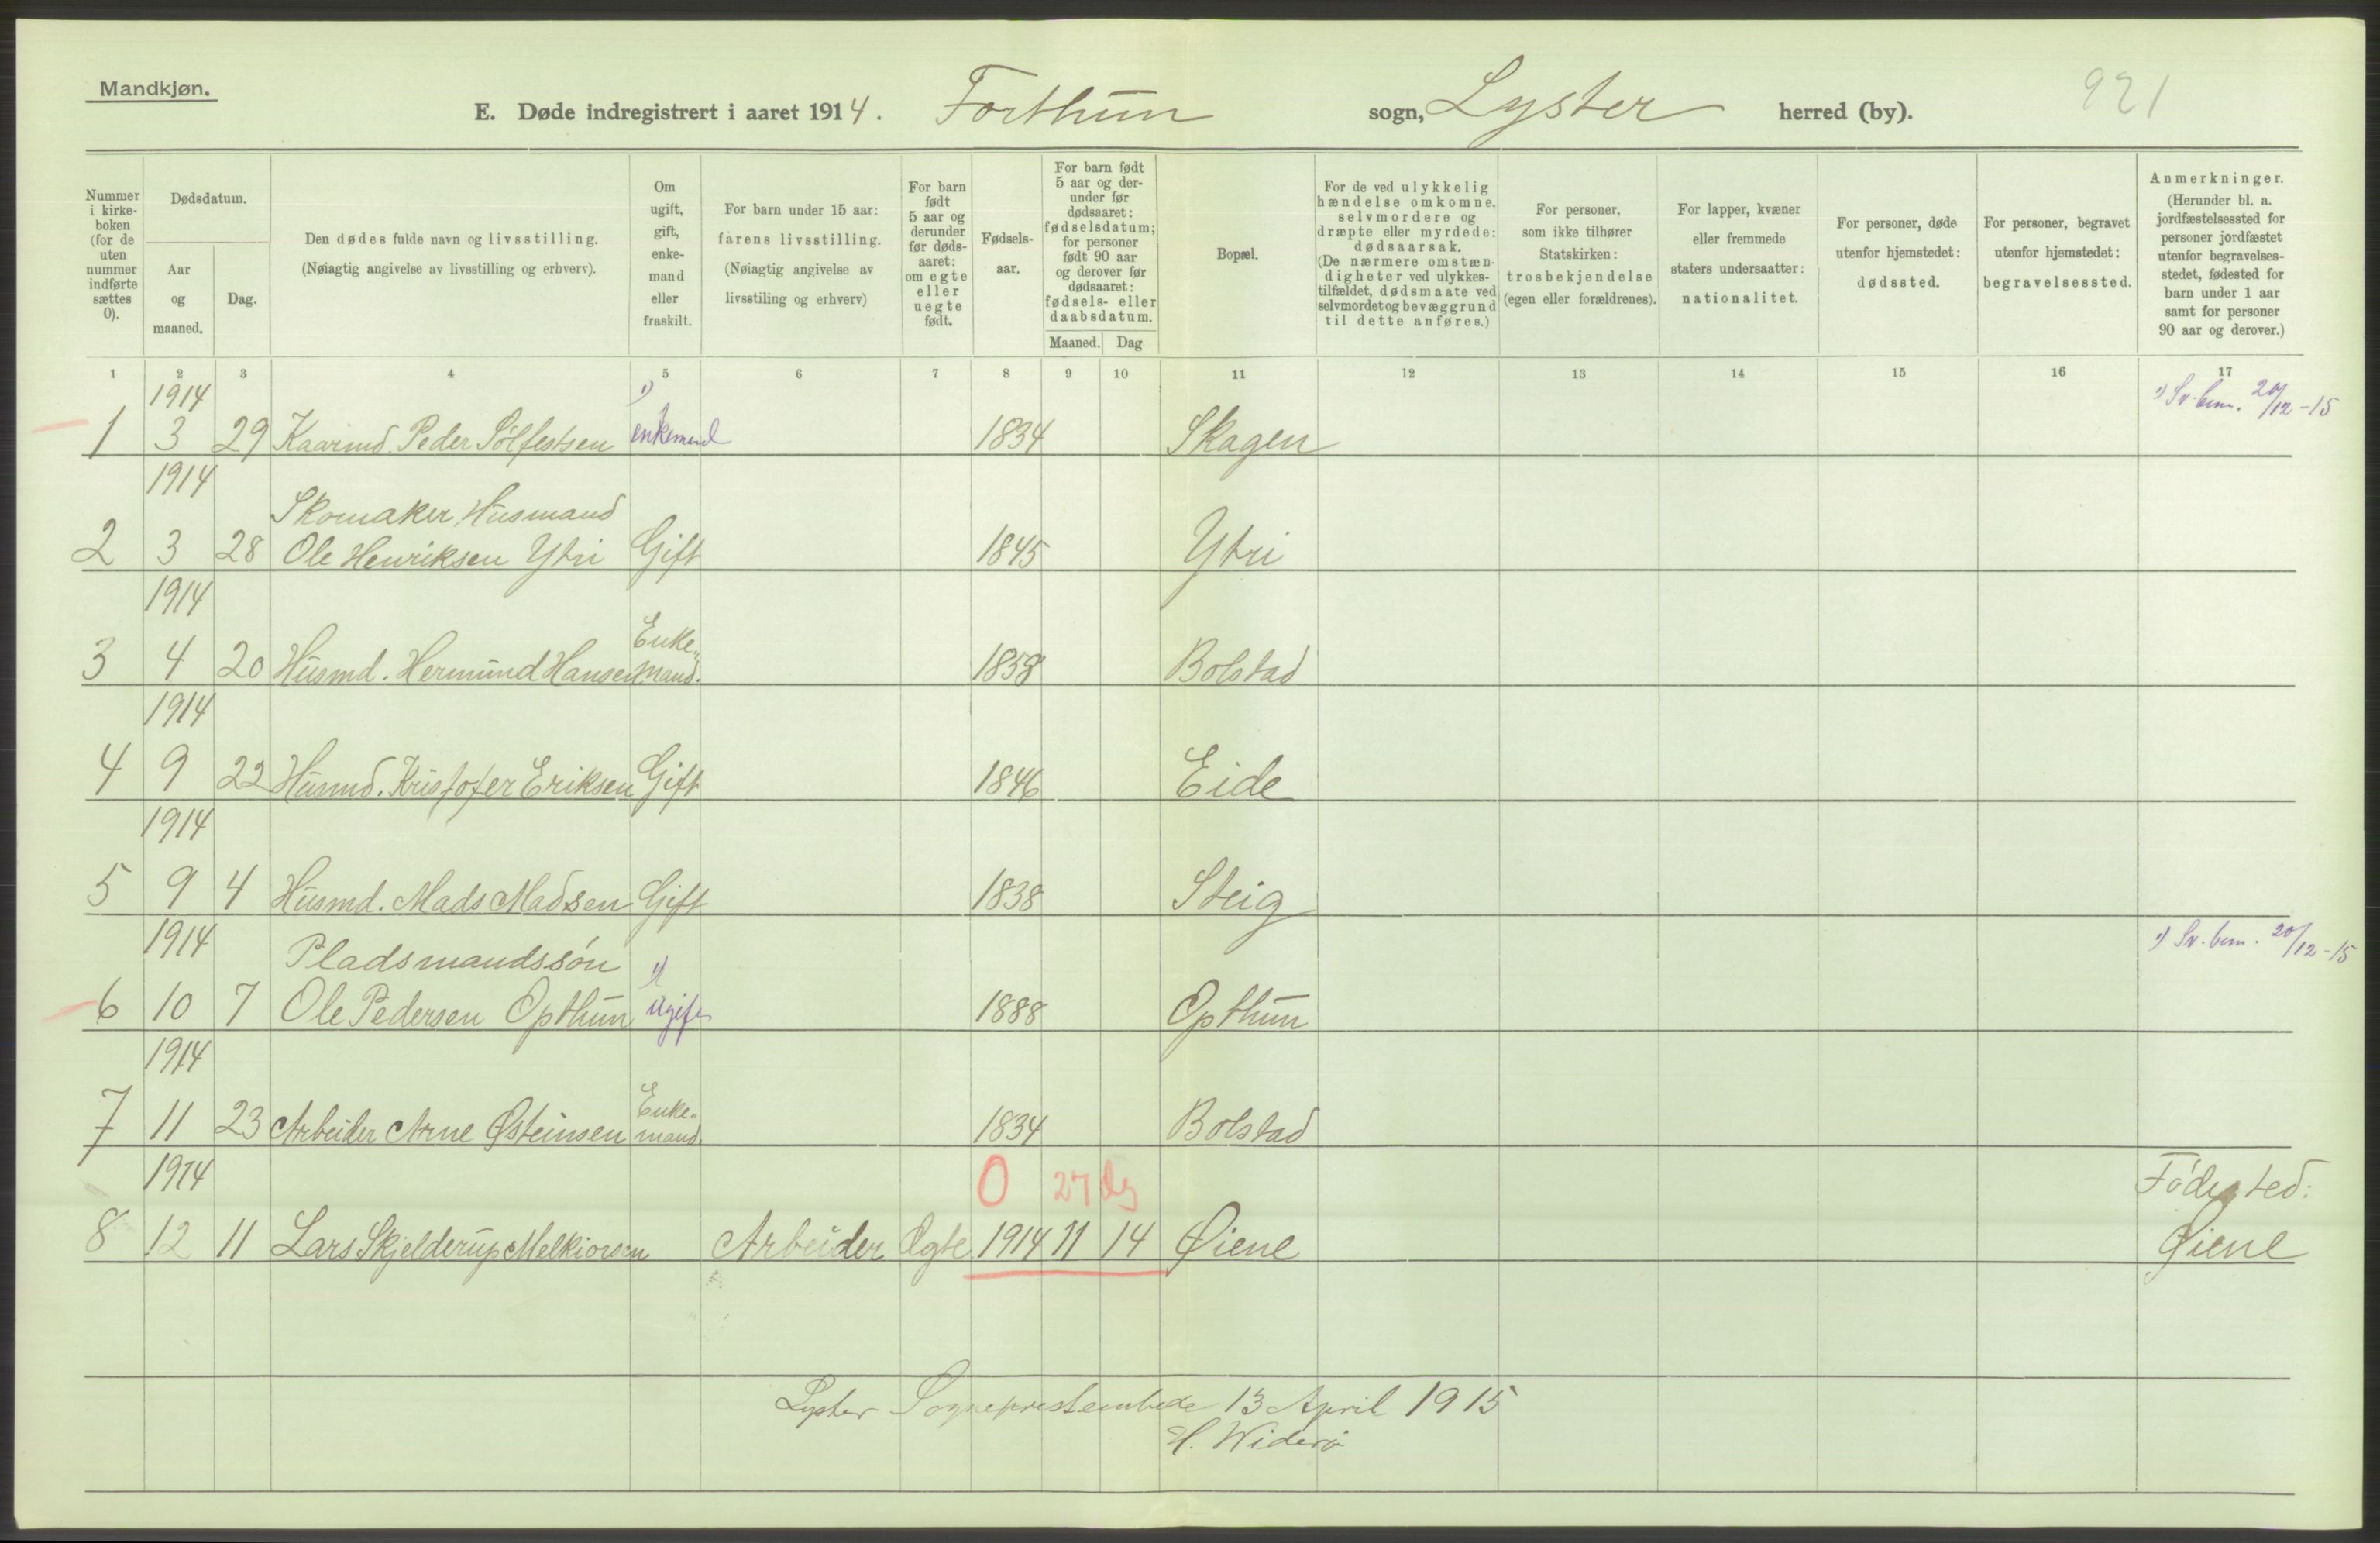 Mandkjøn.
E. Døde indregistrert i aaret 1914. Forthun sogn, Lyster herred (by). 921
Nummer i kirke-boken (for de uten nummer indførte sættes 0).
Dødsdatum.
Aar og maaned.
Dag.
Den dødes fulde navn og livsstilling.
(Nøiagtig angivelse av livsstilling og erhverv).
Om ugift, gift, enke-mand eller fraskilt.
For barn under 15 aar: farens livsstilling.
(Nøiagtig angivelse av livsstiling og erhverv)
For barn født 5 aar og derunder før døds-aaret: om egte eller uegte født.
Fødsels-aar.
For barn født 5 aar og der-under før dødsaaret: fødselsdatum; for personer født 90 aar og derover før dødsaaret: fødsels- eller daabsdatum.
Maaned. Dag
Bopæl.
For de ved ulykkelig hændelse omkomne, selvmordere og dræpte eller myrdede: dødsaarsak.
(De nærmere omstæn-digheter ved ulykkes-tilfældet, dødsmaate ved selvmordet og bevæggrund til dette anføres.)
For personer, som ikke tilhører Statskirken: trosbekjendelse (egen eller forældrenes).
For lapper, kvæner eller fremmede staters undersaatter: nationalitet.
For personer, døde utenfor hjemstedet: dødssted.
For personer, begravet utenfor hjemstedet: begravelsessted.
Anmerkninger.
(Herunder bl. a. jordfæstelsessted for personer jordfæstet utenfor begravelses-stedet, fødested for barn under 1 aar samt for personer 90 aar og derover.)
1 2 3 4 5 6 7 8 9 10 11 12 13 14 15 16 17
1914 1) 1) Sv. bem. 20/12-15
1 3 29 Kaarmd. Peder Sølfestsen enkemand 1834 Skagen
1914
Skomaker, Husmand
2 3 28 Ole Henriksen Ytri Gift 1845 Ytri
1914
Enke-
3 4 20 Husmd. Hermund Hansen mand. 1858 Bolstad
1914
4 9 22 Husmd. Kristofer Eriksen Gift 1846 Eide
1914
5 9 4 Husmd. Mads Madsen Gift 1838 Steig
1914 1) Sv. bem. 20/12-15
Pladsmandssön 1)
6 10 7 Ole Pedersen Opthun ugift 1888 Opthun
1914
Enke-
7 11 23 Arbeider Arne Østeinsen mand. 1834 Bolstad
1914 0 27 dg Födested:
8 12 11 Lars Skjelderup Melkiorsen Arbeider Ægte 1914 11 14 Øiene Øiene
Lyster Sogneprestembede 13 April 1915
H. Widerö